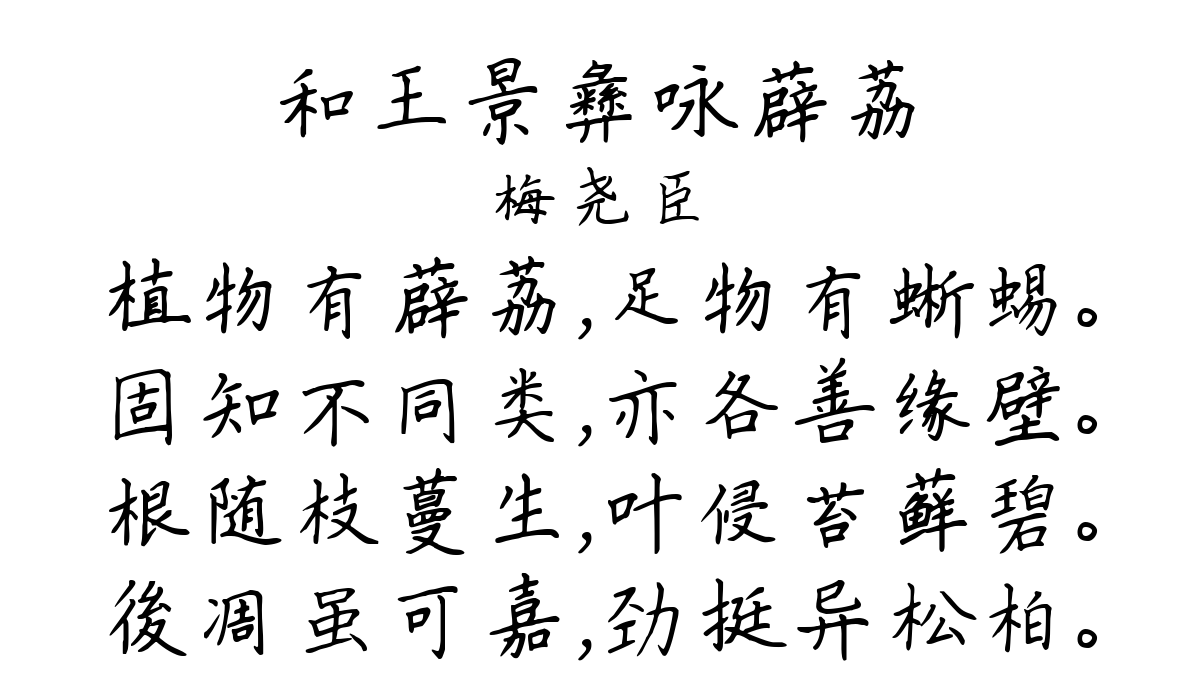 和王景彝咏薜荔
梅尧臣
植物有薜荔,足物有蜥蜴。
固知不同类,亦各善缘壁。
根随枝蔓生,叶侵苔藓碧。
後凋虽可嘉,劲挺异松柏。